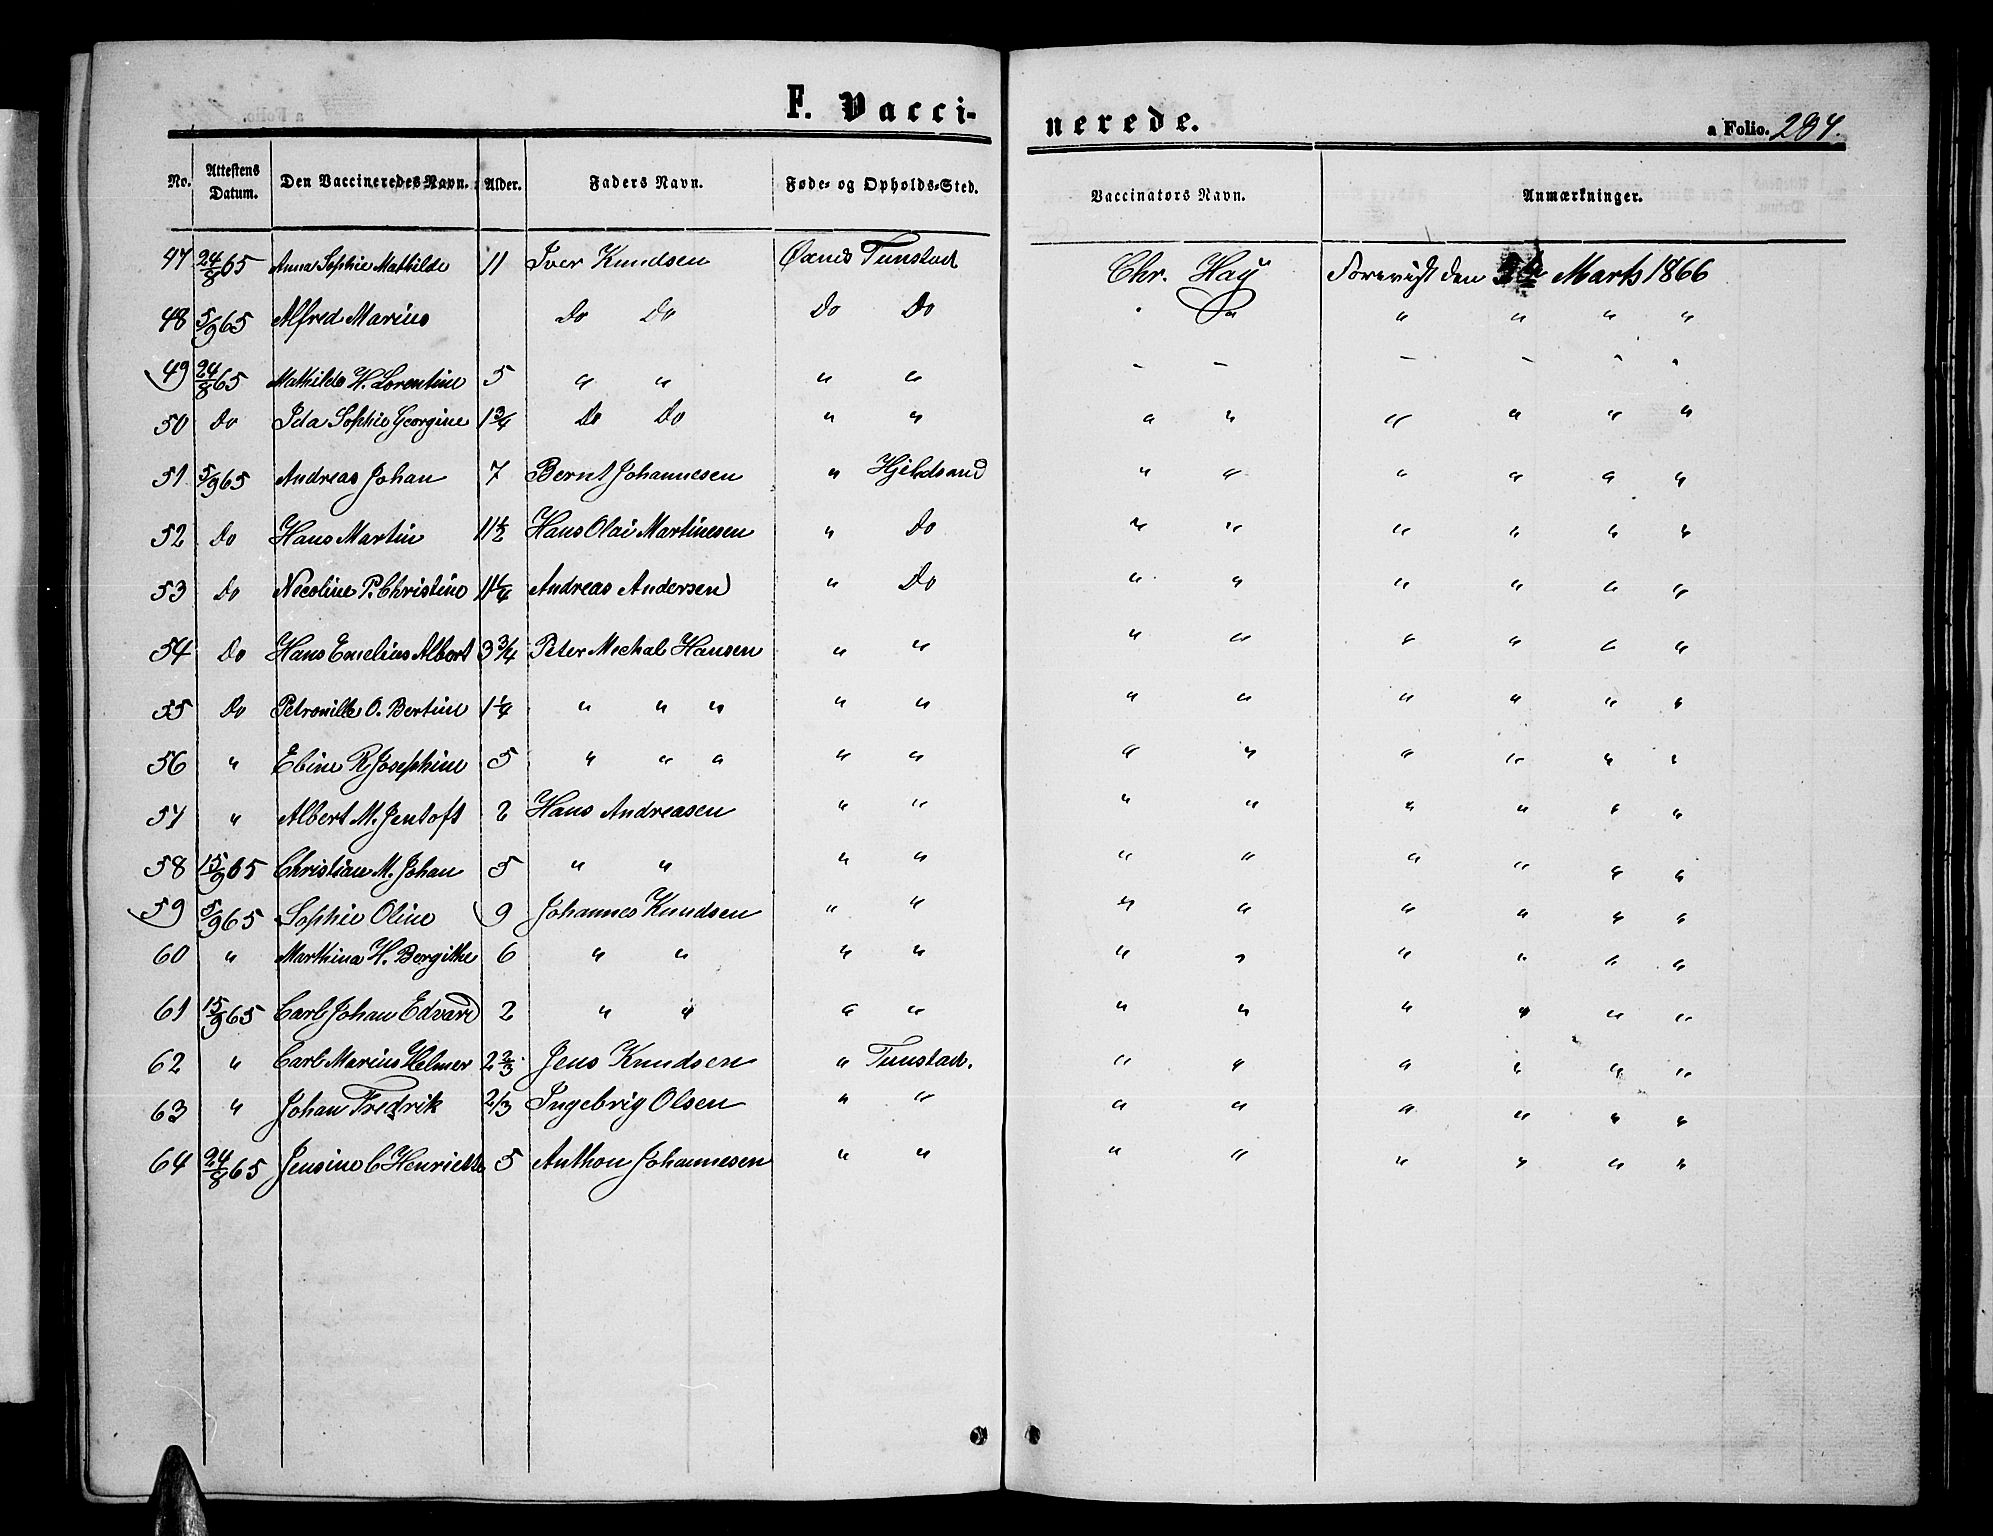 F. Vaccinerede.
a Folio. 284.
No. Attestens Datum. Den Vaccineredes Navn. Alder. Faders Navn. Føde- og Opholds-Sted. Vaccinators Navn. Anmærkninger.
47 24/8 65 Anna Sophie Mathilde 11 Iver Knudsen Øxnes Tunstad Chr. Hay Forevist den Marts 1866
48 5/9 65 Alfred Marius Do Do Do Do " " " " "
49 24/8 65 Mathilde H. Lorentine 5 " " " " " " " " " "
50 Do Ida Sophie Georgine 1 3/4 Do Do " " " " " " " "
51 5/9 65 Andreas Johan 7 Bernt Johannesen " Hjeldsand " " " " " "
52 Do Hans Martin 11 1/2 Hans Olai Martinesen " Do " " " " " "
53 Do Nicoline P. Christine 11 1/4 Andreas Andersen " Do " " " " " "
54 Do Hans Emelius Albert 3 3/4 Peter Mechal Hansen " " " " " " " "
55 Do Petronille O. Bertine 1 1/4 " " " " " " " " " " "
56 " Ebine R. Josephine 5 " " " " " " " " " " "
57 " Albert M. Jentoft 2 Hans Andreasen " " " " " " " "
58 15/9 65 Christian M. Johan 5 " " " " " " " " " "
59 5/9 65 Sophie Oline 9 Johannes Knudsen " " " " " " " "
60 " Marthina H. Bergithe 6 " " " " " " " " " "
61 15/9 65 Carl Johan Edvard 2 " " " " " " " " " "
62 " Carl Marius Helmer 2 2/3 Jens Knudsen " Tunstad. " " " " " "
63 " Johan Fredrik 2/3 Ingebrig Olsen " " " " " " " "
64 24/8 65 Jensine C Henriette 5 Anthon Johannesen " " " " " " " "